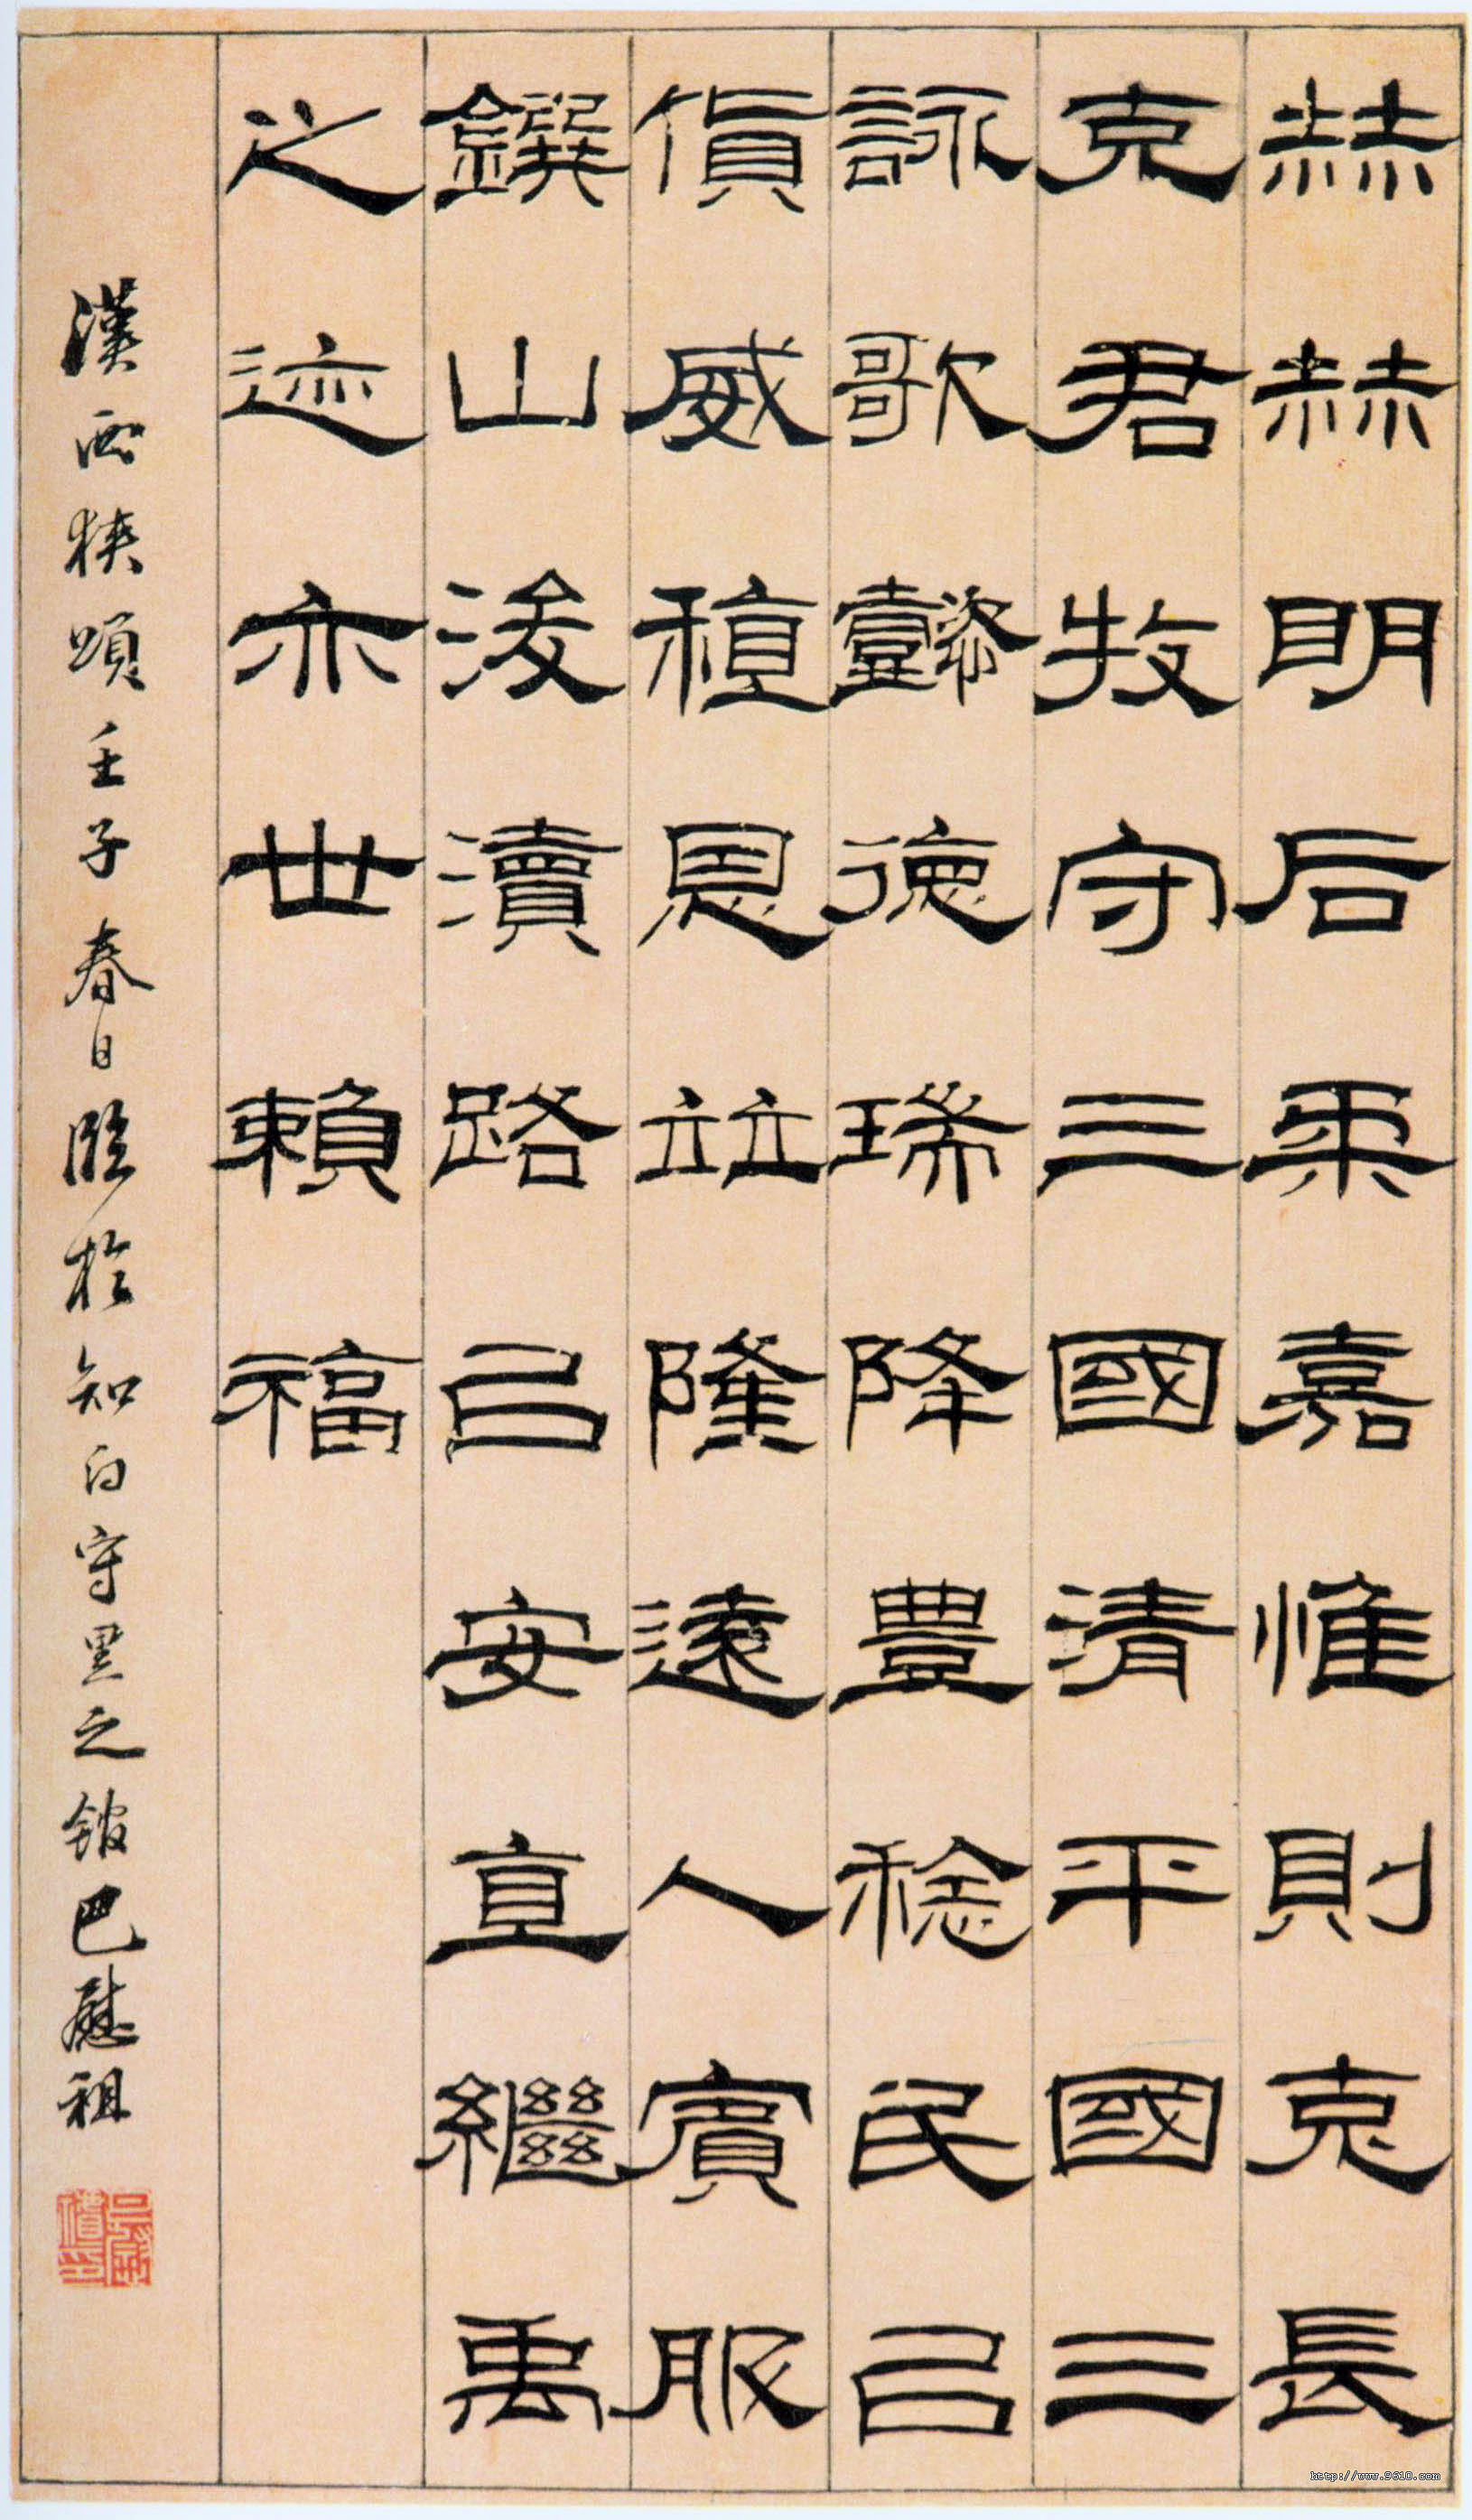 赫赫明后柔嘉惟則克長
克君牧守三國清平國三
詠歌懿德瑞降豐稔民㠯
貨威稙恩竝隆遠人賓服
鐉山浚瀆路㠯安直繼禹
之迹亦世賴福
漢西狹頌壬子春日臨於知白守黑之館巴慰祖
http://www.9610.com